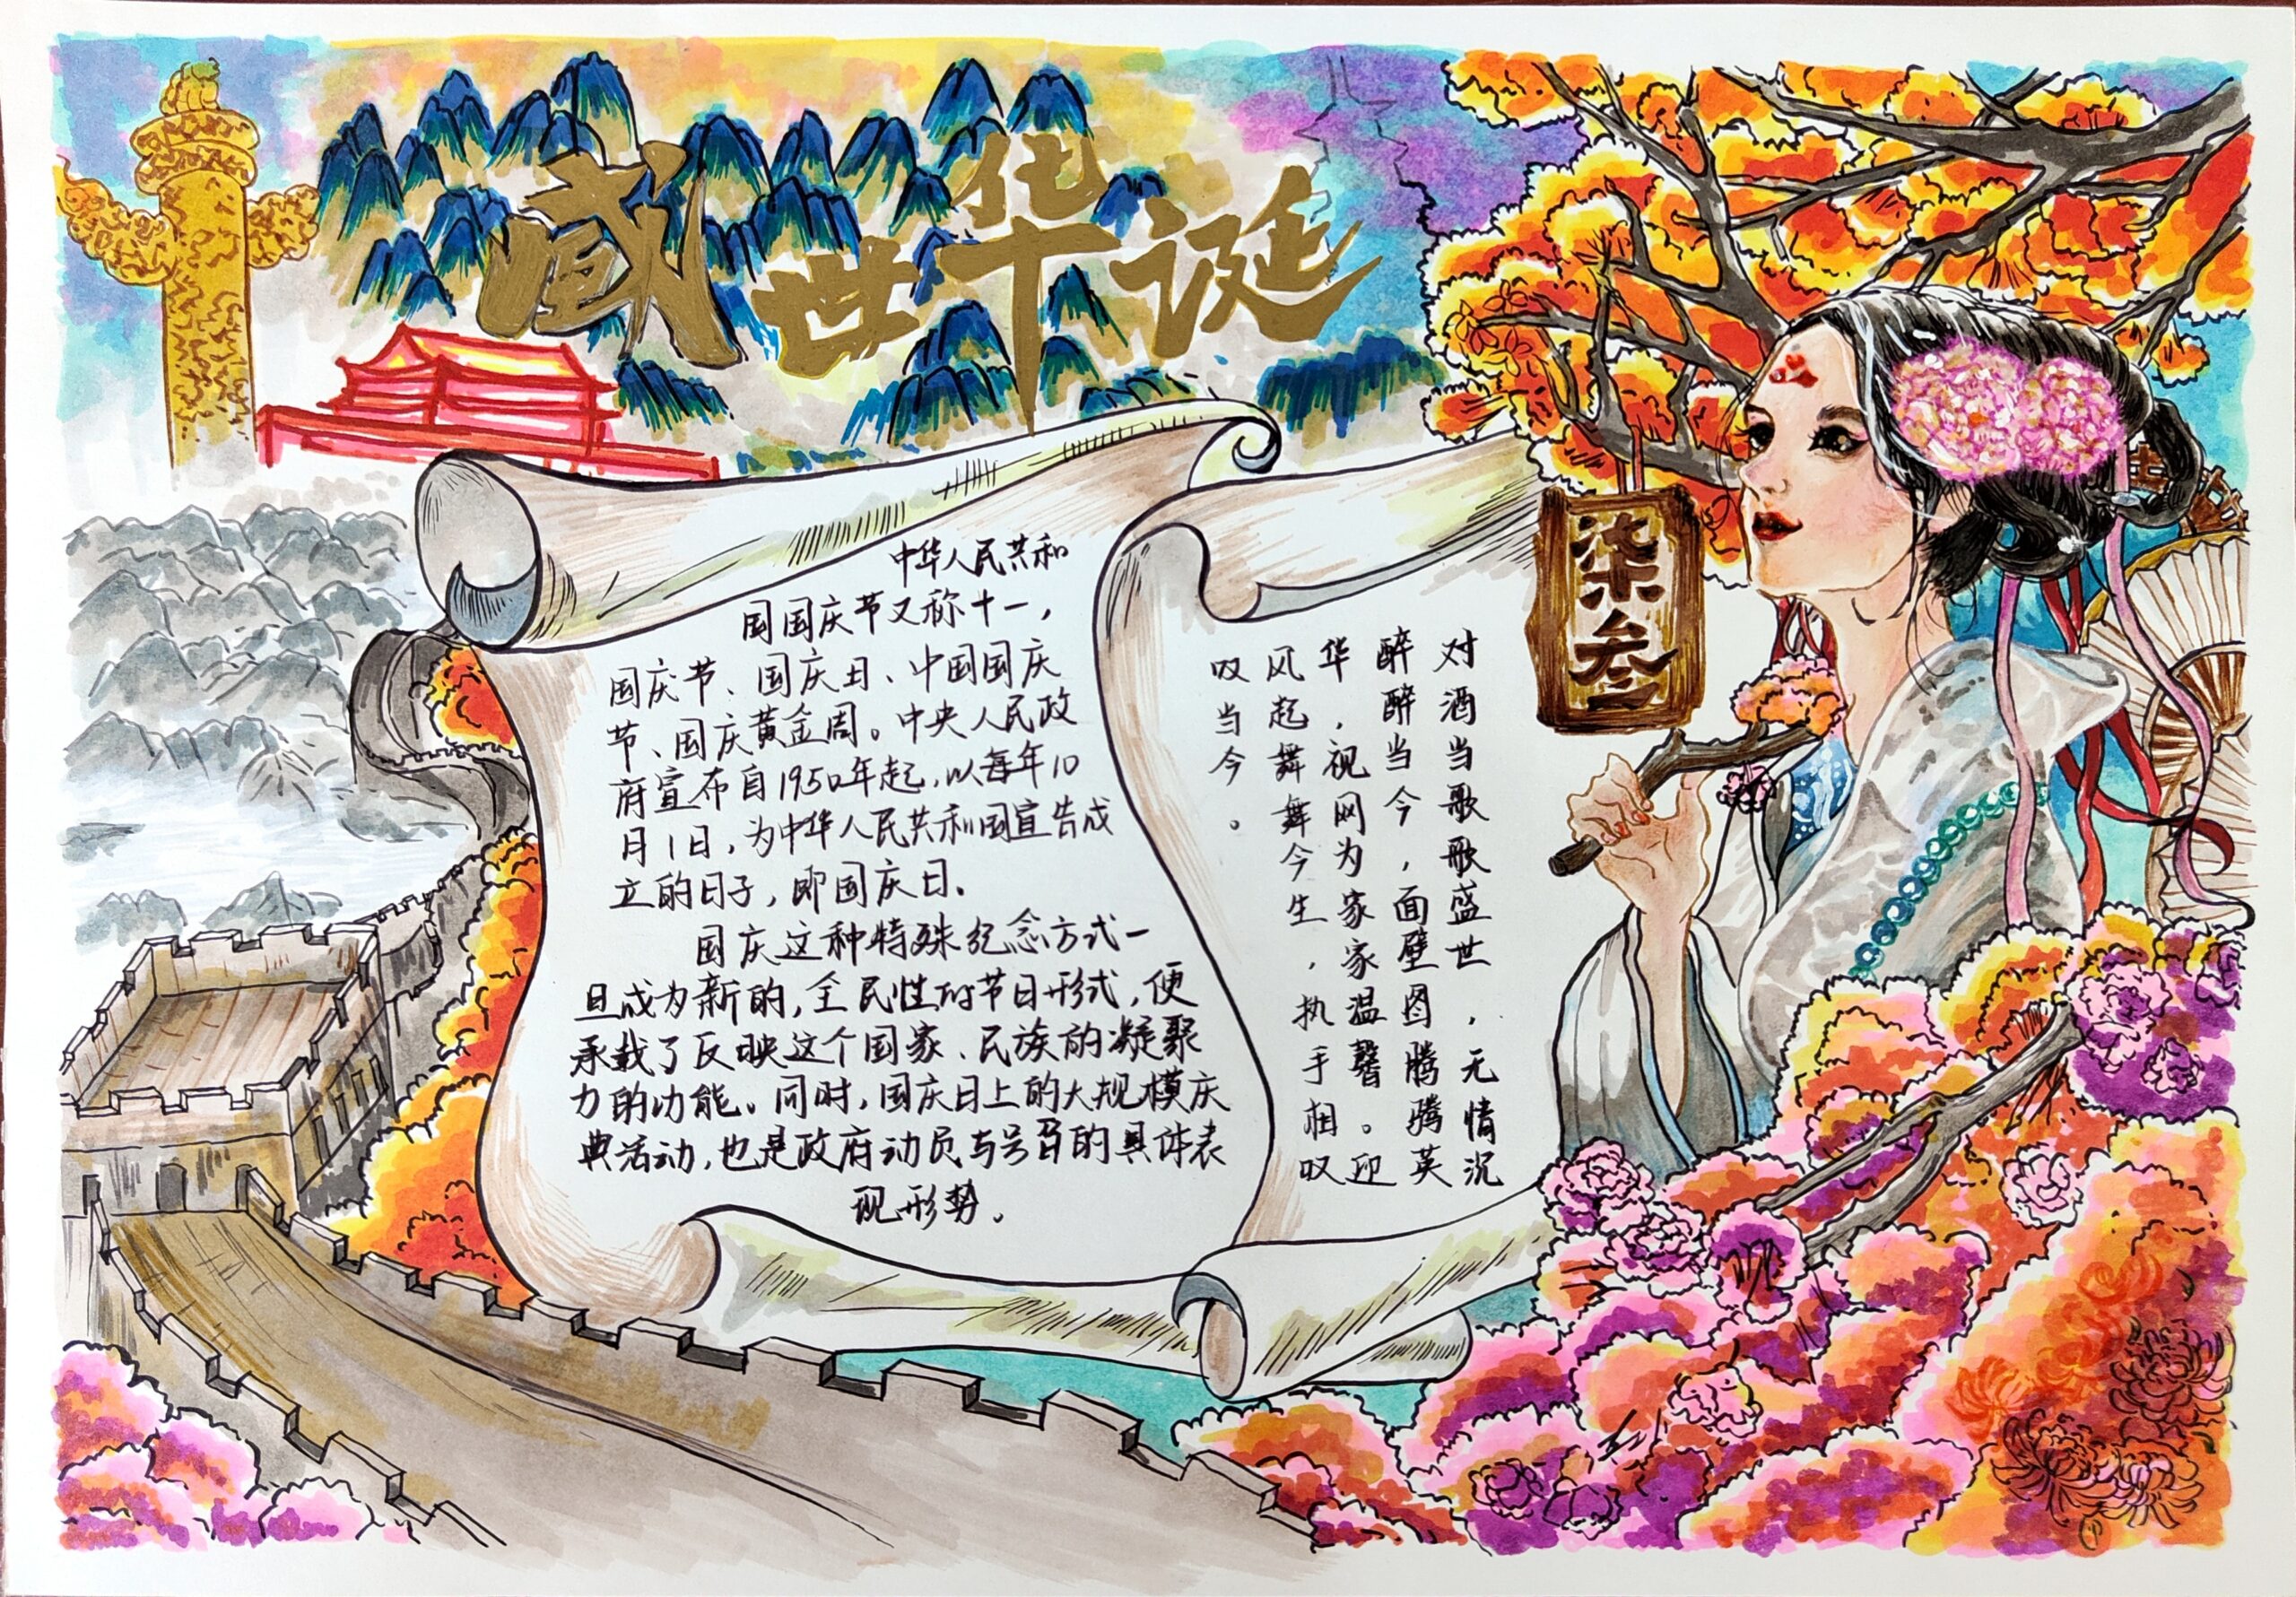 盛世华诞
中华人民共和
国国庆节又称十一，
国庆节、国庆日、中国国庆
节、国庆黄金周。中央人民政
府宣布自1950年起，以每年10
月1日，为中华人民共和国宣告成
立的日子，即国庆日。
国庆这种特殊纪念方式一
旦成为新的，全民性的节日形式，便
承载了反映这个国家、民族的凝聚
力的功能。同时，国庆日上的大规模庆
典活动，也是政府动员与号召的具体表
现形势。
对酒当歌歌盛世，无情沉
醉醉当今，面壁图腾腾英
华，视网为家家温馨。迎
风起舞舞今生，执手相叹
叹当今。
柒叁